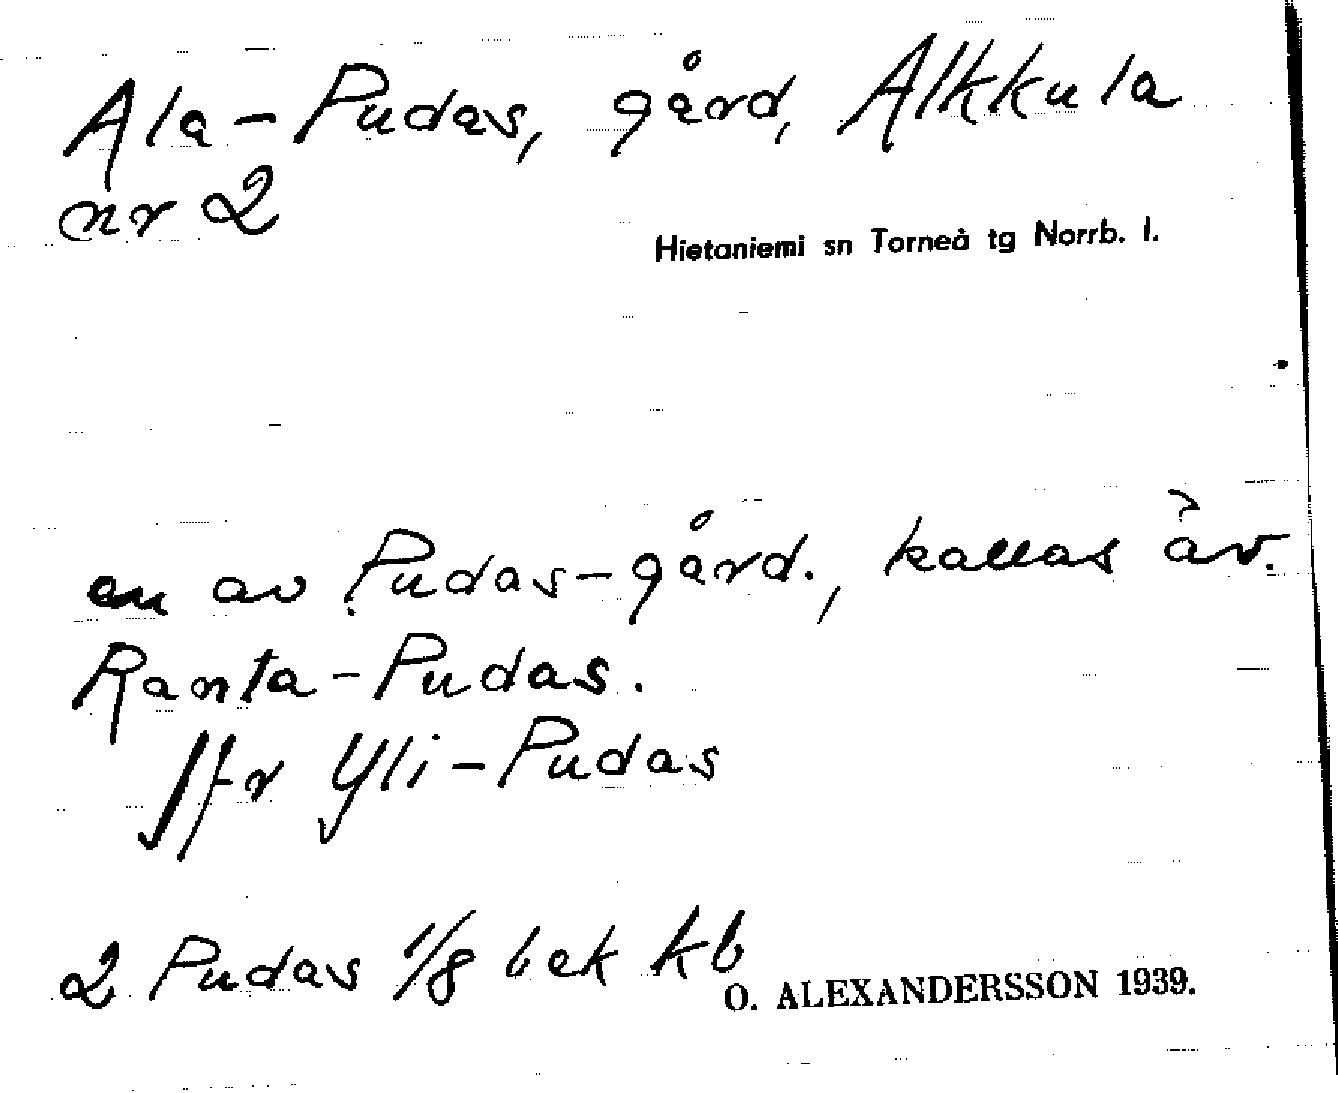 Ala-Pudas, gård, Alkkula
nr 2
Hietaniemi sn Torneå tg Norrb. l.
en av Pudas-gård., kallas äv.
Ranta-Pudas.
Jfr Yli-Pudas
2 Pudas 1/8 bek kb
O. ALEXANDERSSON 1939.